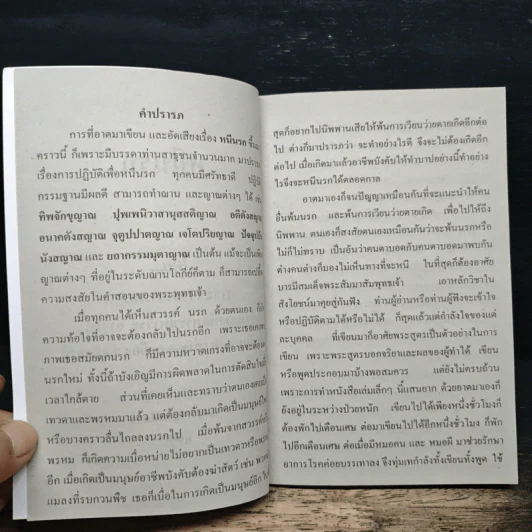 คำปรารภ
การที่อาตมาเขียน และอัดเสียงเรื่อง หนีนรก ขึ้นม
คราวนี้ ก็เพราะมีบรรดาท่านสาธุชนจำนวนมาก มาปรารภ
เรื่องการปฏิบัติเพื่อหนีนรก ทุกคนมีศรัทธาดี ปฏิบั
กรรมฐานมีผลดี สามารถทำฌาน และญาณต่างๆ ได้ เช่น
ทิพจักขุญาณ ปุพเพนิวาสานุสสติญาณ อตีตังสญาณ
อนาคตังสญาณ จุตูปปาตญาณ เจโตปริยญาณ ปัจจุปปัน
นังสญาณ และ ยถากรรมมุตาญาณ เป็นต้น แม้จะเป็นเพีย
ญาณต่างๆ ที่อยู่ในระดับฌานโลกีย์ก็ตาม ก็สามารถเปลื้
ความสงสัยในคำสอนของพระพุทธเจ้า
เมื่อทุกคนได้เห็นสวรรค์ นรก ด้วยตนเอง ก็เกิ
ความท้อใจที่อาจจะต้องกลับไปนรกอีก เพราะเธอเคยทรา
ภาพเธอสมัยตกนรก ก็มีความหวาดเกรงที่อาจจะต้องต
นรกใหม่ ทั้งนี้ถ้าบังเอิญมีการผิดพลาดในการตัดสินใจเมื่
เวลาใกล้ตาย ส่วนที่เคยเห็นและทราบว่าตนเองเคยเป็
เทวดาและพรหมมาแล้ว แต่ต้องกลับมาเกิดเป็นมนุษย์ให
หรือบางคราวลื่นไถลลงนรกไป เมื่อพ้นจากสวรรค์หรื
พรหม ก็เกิดความเบื่อหน่ายไม่อยากเป็นเทวดาหรือพรห
อีก เมื่อเกิดเป็นมนุษย์อาชีพบังคับต้องฆ่าสัตว์ เช่น พวก
แมลงที่รบกวนพืช เธอก็เบื่อในการเกิดเป็นมนุษย์อีก ใน
สุดก็อยากไปนิพพานเสียให้พ้นการเวียนว่ายตายเกิดอีกต่อ
ไป ต่างก็มาปรารภว่า จะทำอย่างไรดี จึงจะไม่ต้องเกิดอีก
ต่อไป เมื่อเกิดมาแล้วอาชีพบังคับให้ทำบาปอย่างนี้ทำอย่า
งไรจึงจะหนีนรกได้ตลอดกาล
อาตมาเองก็จนปัญญาเหมือนกันที่จะแนะนำให้คน
อื่นพ้นนรก และพ้นการเวียนว่ายตายเกิด เพื่อไปให้ถึง
นิพพาน ตนเองก็สงสัยตนเองเหมือนกันว่าจะพ้นนรกหรือ
ไม่ก็ไม่ทราบ เป็นอันว่าคนตาบอดกับคนตาบอดมาพบกัน
ต่างคนต่างก็มองไม่เห็นทางที่จะหนี ในที่สุดก็ต้องอาศัย
บารมีสมเด็จพระสัมมาสัมพุทธเจ้า เอาหลักวิชาใน
สังโยชน์มาคุยสู่กันฟัง ท่านผู้อ่านหรือท่านผู้ฟังจะเข้าใจ
หรือปฏิบัติตามได้หรือไม่ได้ ก็สุดแล้วแต่กำลังใจของแต่
ละบุคคล ที่เขียนมาก็อาศัยพระสูตรเป็นตัวอย่างในการ
เขียน เพราะพระสูตรบอกจริยาและผลของผู้ทำได้ เขียน
หรือพูดประกอบมาบ้างพอสมควร แต่ยังไม่ครบถ้วน
เพราะการทำหนังสือเล่มเล็กๆ นี้แสนยาก ด้วยอาตมาเองก็
ยังอยู่ในระหว่างป่วยหนัก เขียนไปได้เพียงหนึ่งชั่วโมงก็
ต้องพักไปเดือนเศษ ต่อมาเขียนไปได้อีกหนึ่งชั่วโมง ก็พัก
ไปอีกเดือนเศษ ต่อเมื่อมีหมอคน และ หมอผี มาช่วยรักษา
อาการโรคค่อยบรรเทาลง จึงทุ่มเทกำลังทั้งเขียนทั้งพูด ใช้